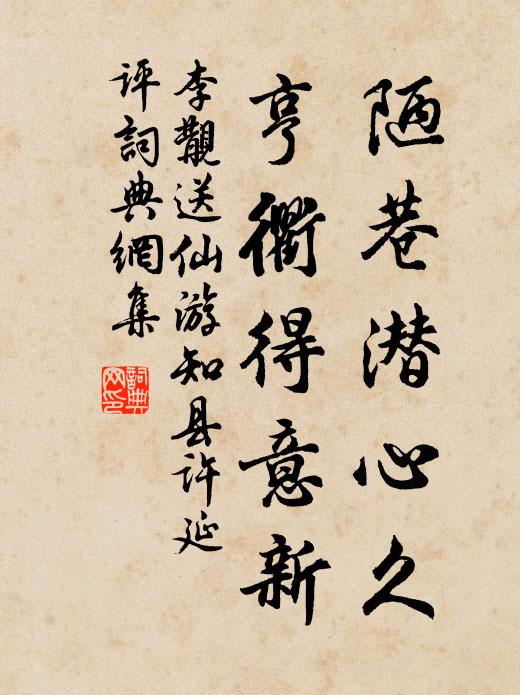 陋巷潜心久
亨衢得意新
李覯送仙游知县许延
评詞典網集
詞典网印